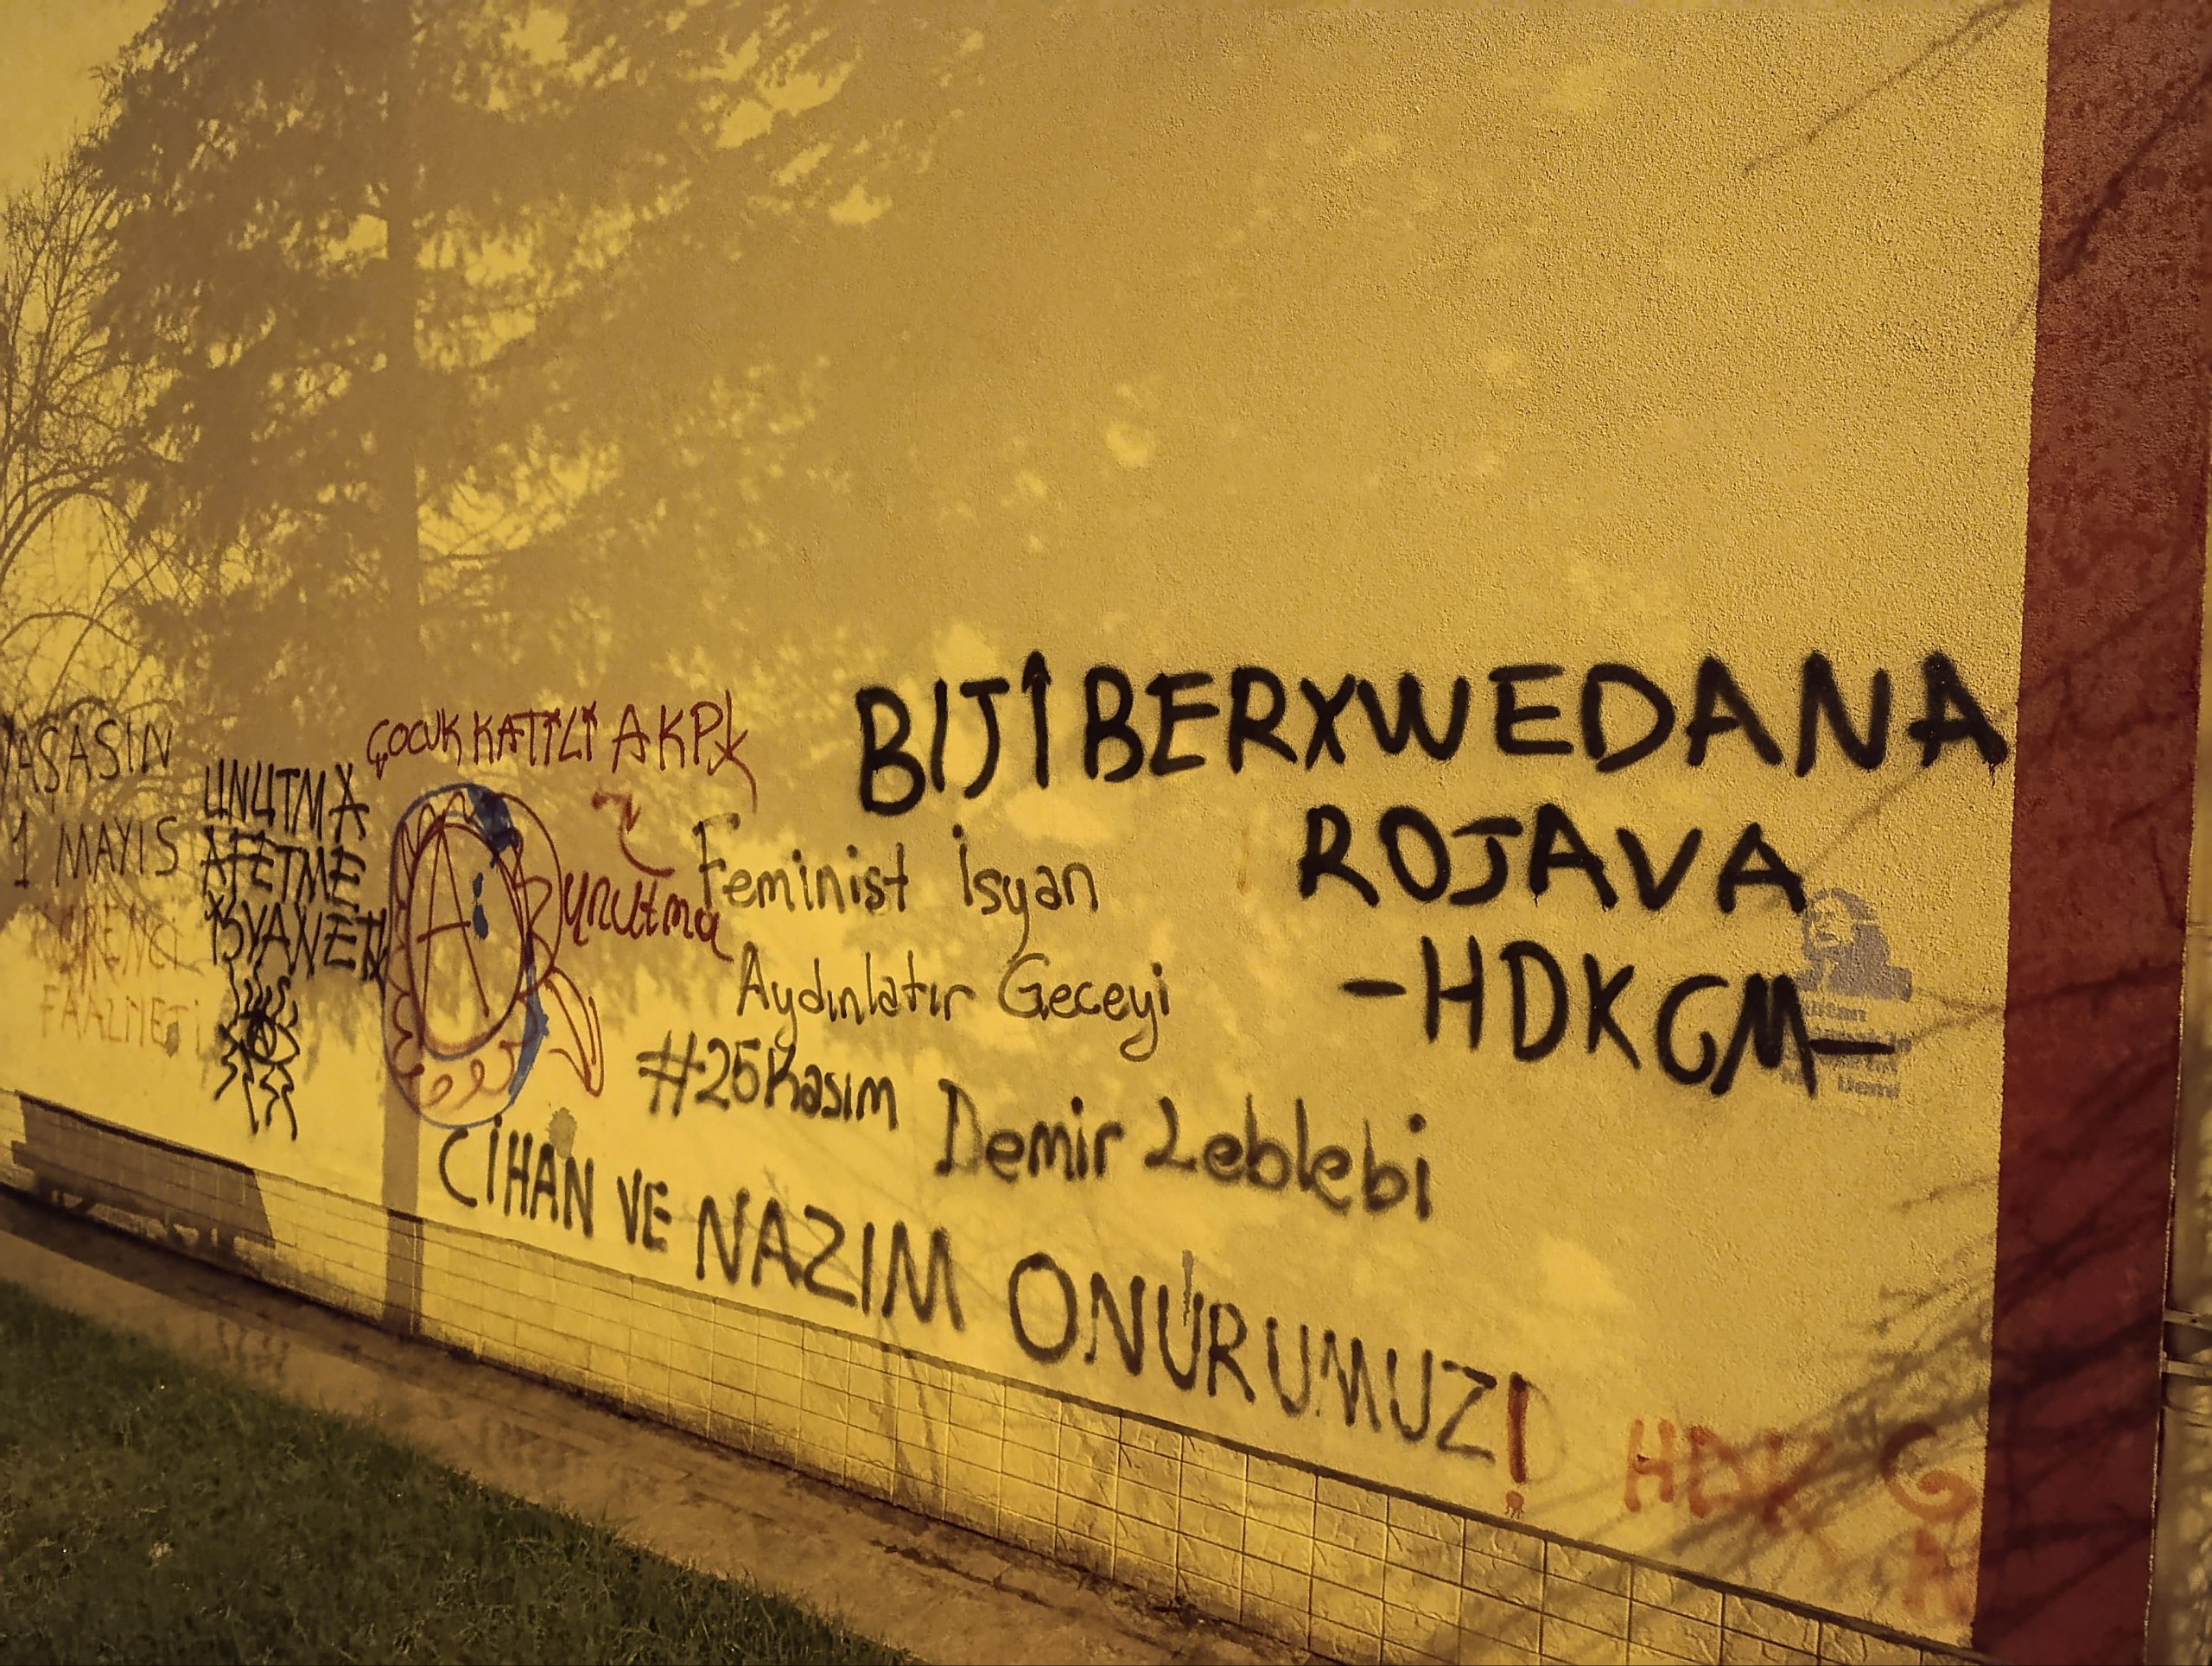 YAŞASIN
1 MAYIS
FAALİYETİ
UNUTMA
AFETME
İSYANET
ÇOCUK KATİLİ AKP
A
unutma
Feminist İsyan
Aydınlatır Geceyi
#25Kasım
Demir Leblebi
CİHAN VE NAZIM ONURUMUZ!
BIJÎ BERXWEDANA
ROJAVA
-HDKGM-
HDK G